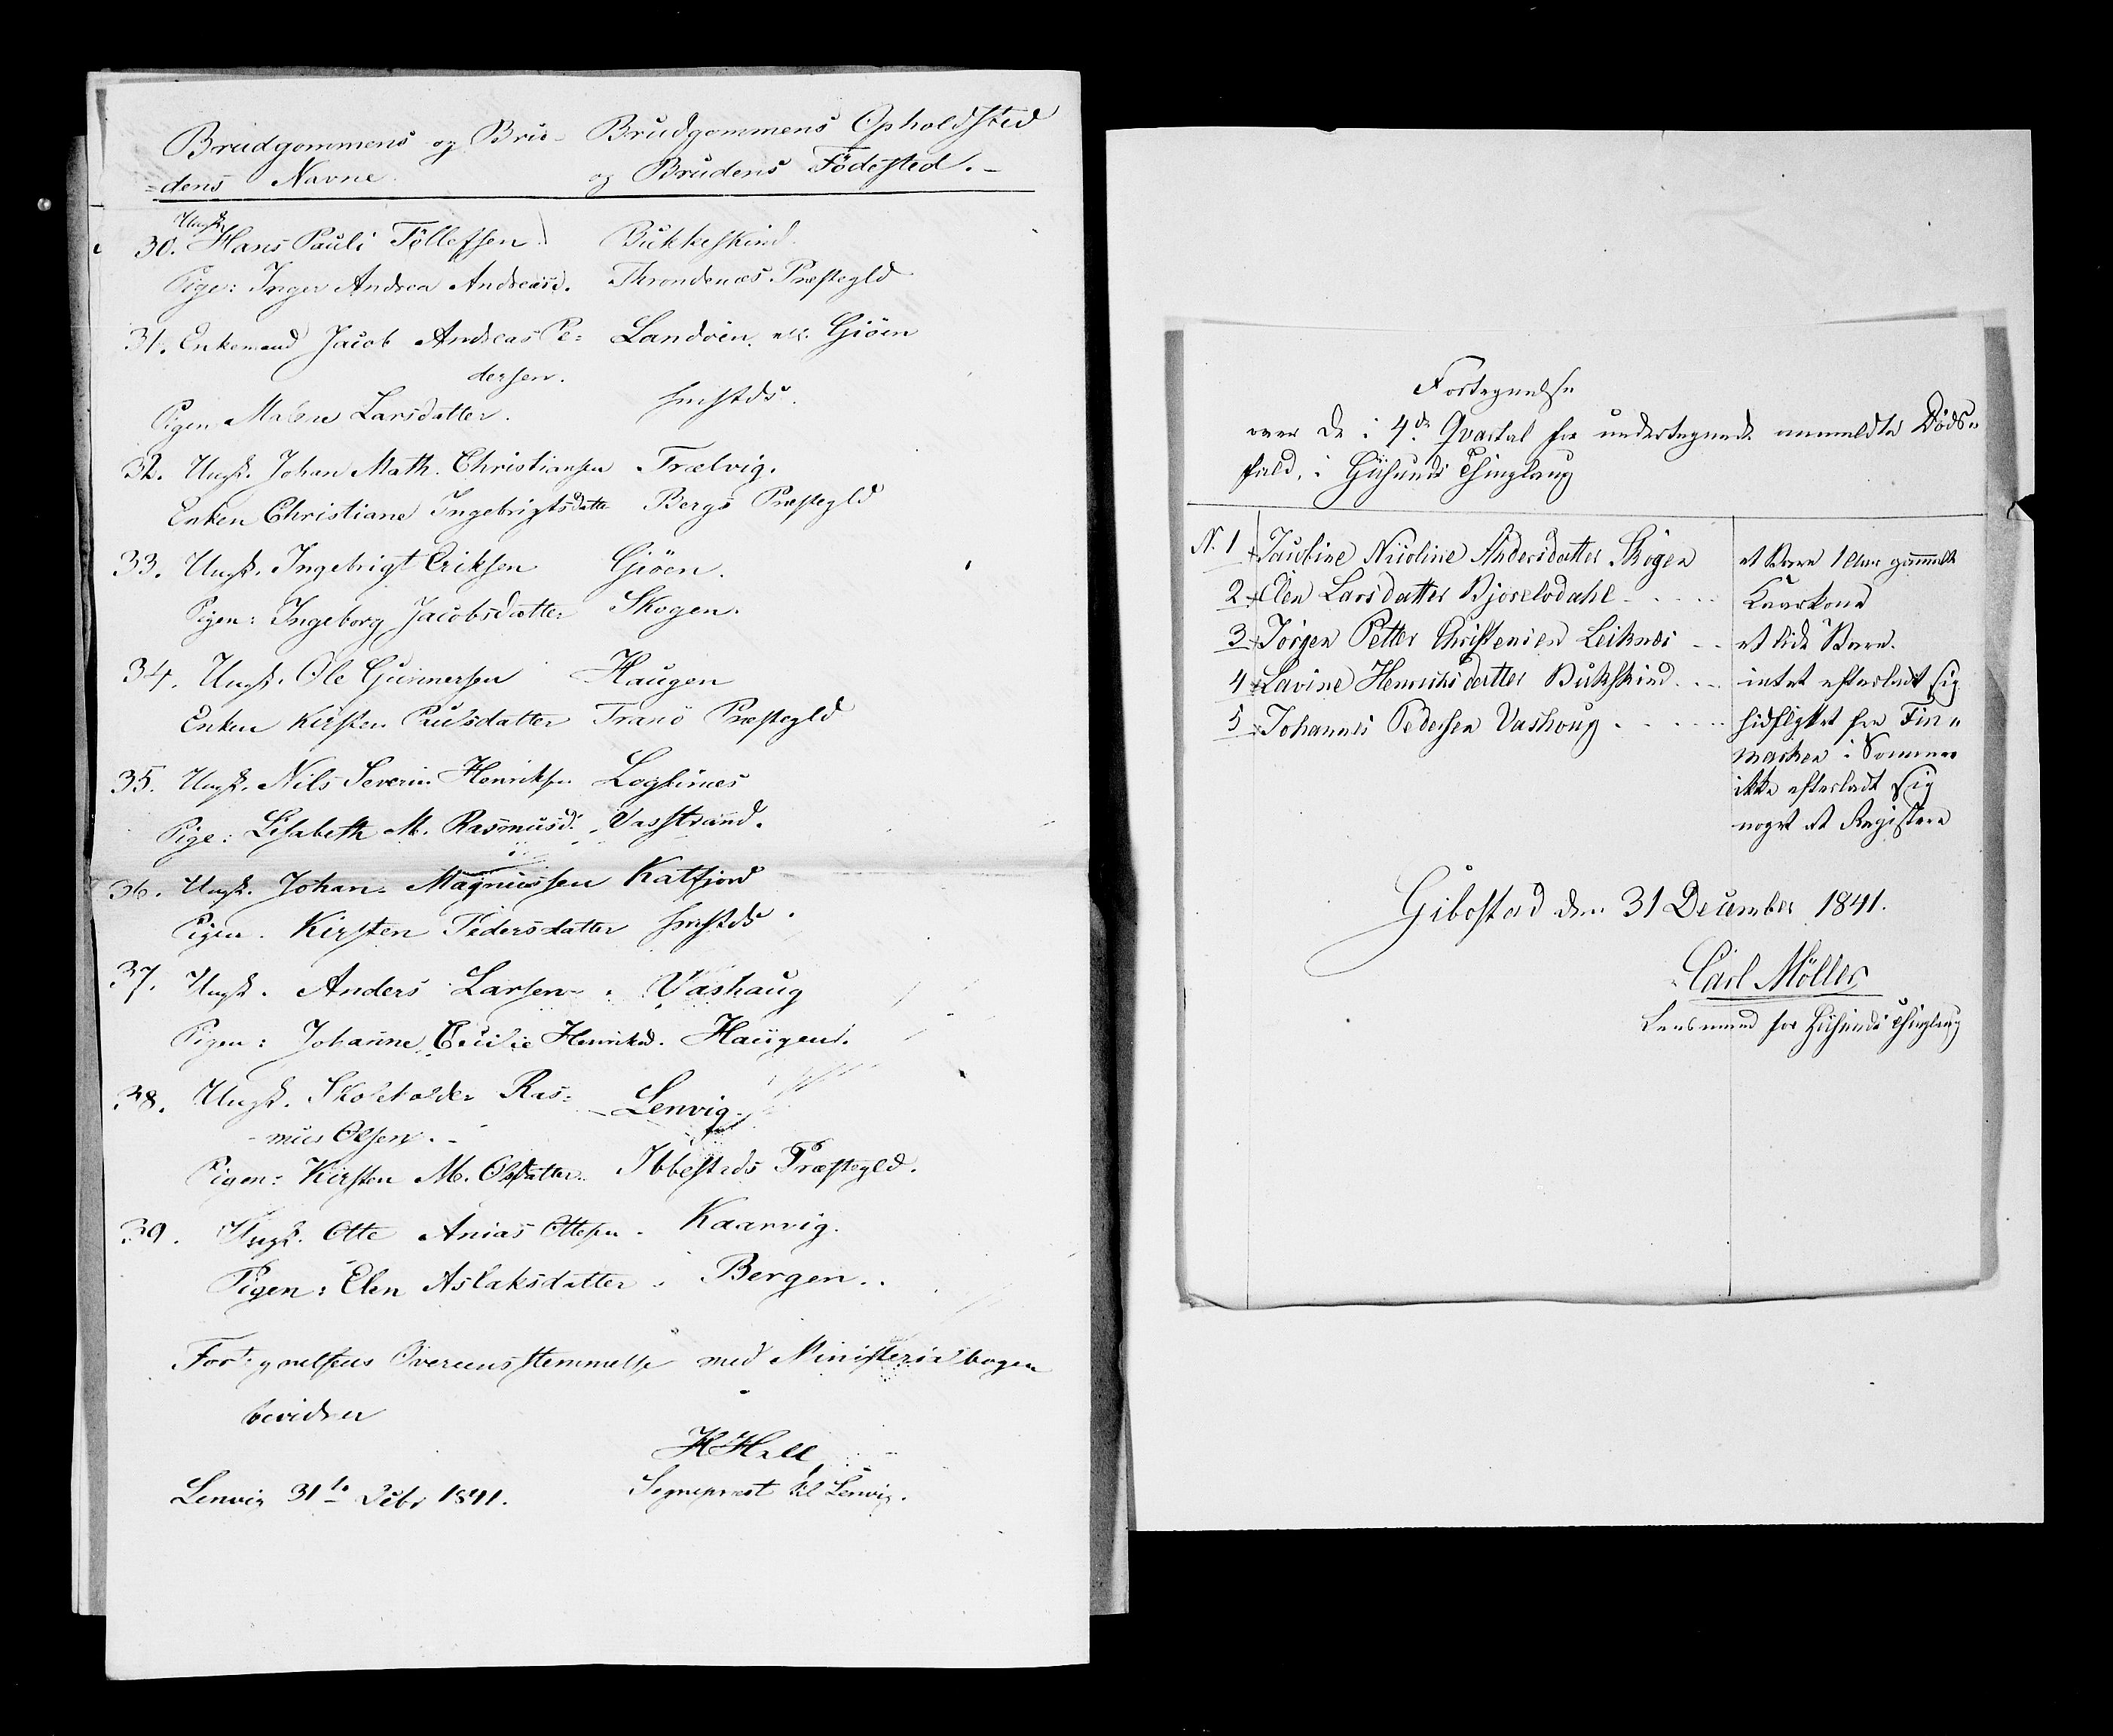 Brudgommens og Bru- Brudgommens Opholdsted
-dens Navne. og Brudens Födested.-
Ungk.
30. Hans Pauli Tollefsen. Bukkeskind.
Pige: Inger Andrea Andreasd. Throndenæs Præstegld
31. Enkemand Jacob Andreas Pe= Landöen. Giöen
dersen.
Pigen Malene Larsdatter. sammesteds.
32. Ungk. Johan Math. Christiansen Trælvig.
Enken Christiane Ingebrigtsdatter Bergs Præstegld
33. Ungk. Ingebrigt Eriksen Giöen.
Pigen: Ingeborg Jacobsdatter Skogen.
34. Ungk. Ole Gunnersen Haugen
Enken Kirsten Paulsdatter Tranö Præstegld
35. Ungk. Nils Severin Henriksen Laxsnæs
Pige: Lisabeth M. Rasmusd. Vasstrand.
36. Ungk. Johan Magnussen Katfjord
Pigen. Kirsten Pedersdatter sammesteds.
37. Ungk. Anders Larsen. Vashaug
Pigen: Johanne Cecilie Henriksd. Haugen.
38. Ungk. Skoleholder Ras= Lenvig.
-mus Olsen.-
Pigen: Kirsten M. Olsdatter. Ibbesteds Præstegld.
39. Ungk. Otte Anias Ottesen. Kaarvig.
Pigen: Elen Aslaksdatter. Bergen..
Fortegnelsens Overeensstemmelse med Ministerialbogen
bevidner
H Hall
Lenvig 31te Debr 1841. Sognepræst til Lenvig.
Fortegnelse
over de i 4de Qvartal for undertegnede anmeldte Døds-
fald, i Gisunds Thinglaug
N. 1 Paubine Nicoline Andersdatter Skogen et Barn 1 Aar gammelt
2 Elen Larsdatter Bjorelvdahl - - - - Kaarkone
3 Jörgen Petter Christensen Leiknes - - et lidet Barn.
4 Lavine Henriksdatter Bukskind - - intet efterladt sig
5 Johannes Pedersen Vashoug - - - - - hidflyttet fra Fin-
marken i Sommer
ikke efterladt sig
noget at Registere
Gibostad den 31 December 1841.
Carl Möller
Lensmand for Gisunds Thinglaug